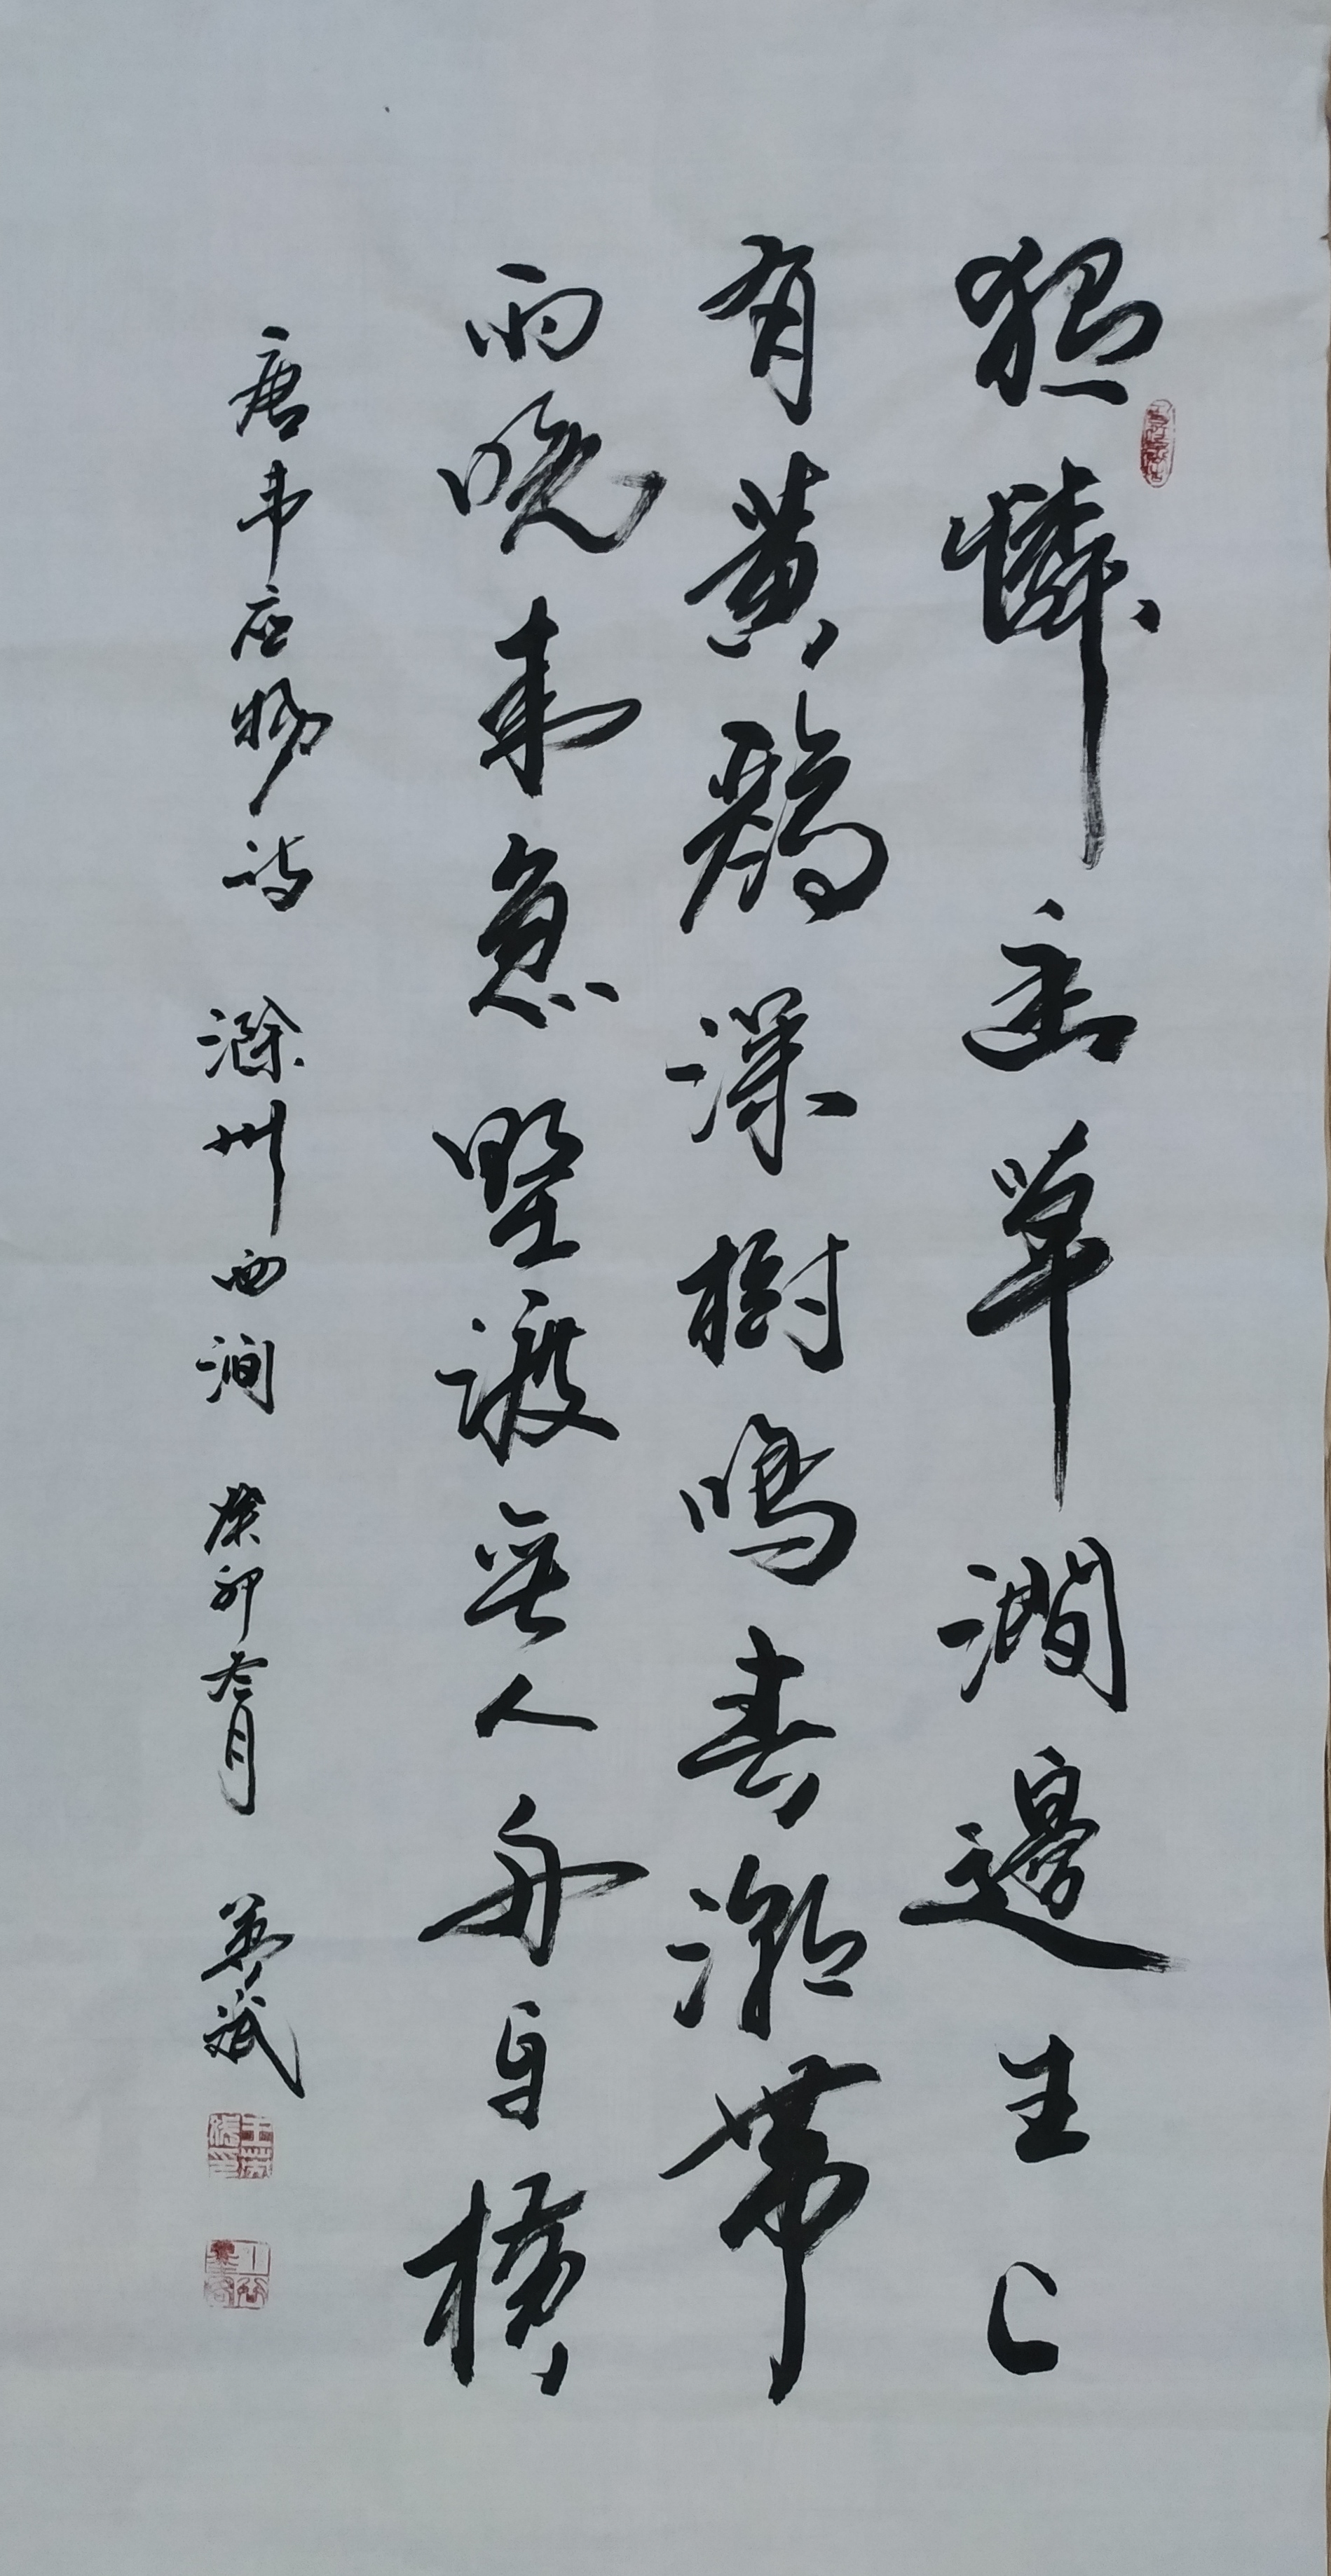 独憐幽草澗邊生上
有黄鸝深樹鳴春潮帶
雨晚来急野渡無人舟自横
唐韦应物诗 滁州西涧 癸卯六月 英斌